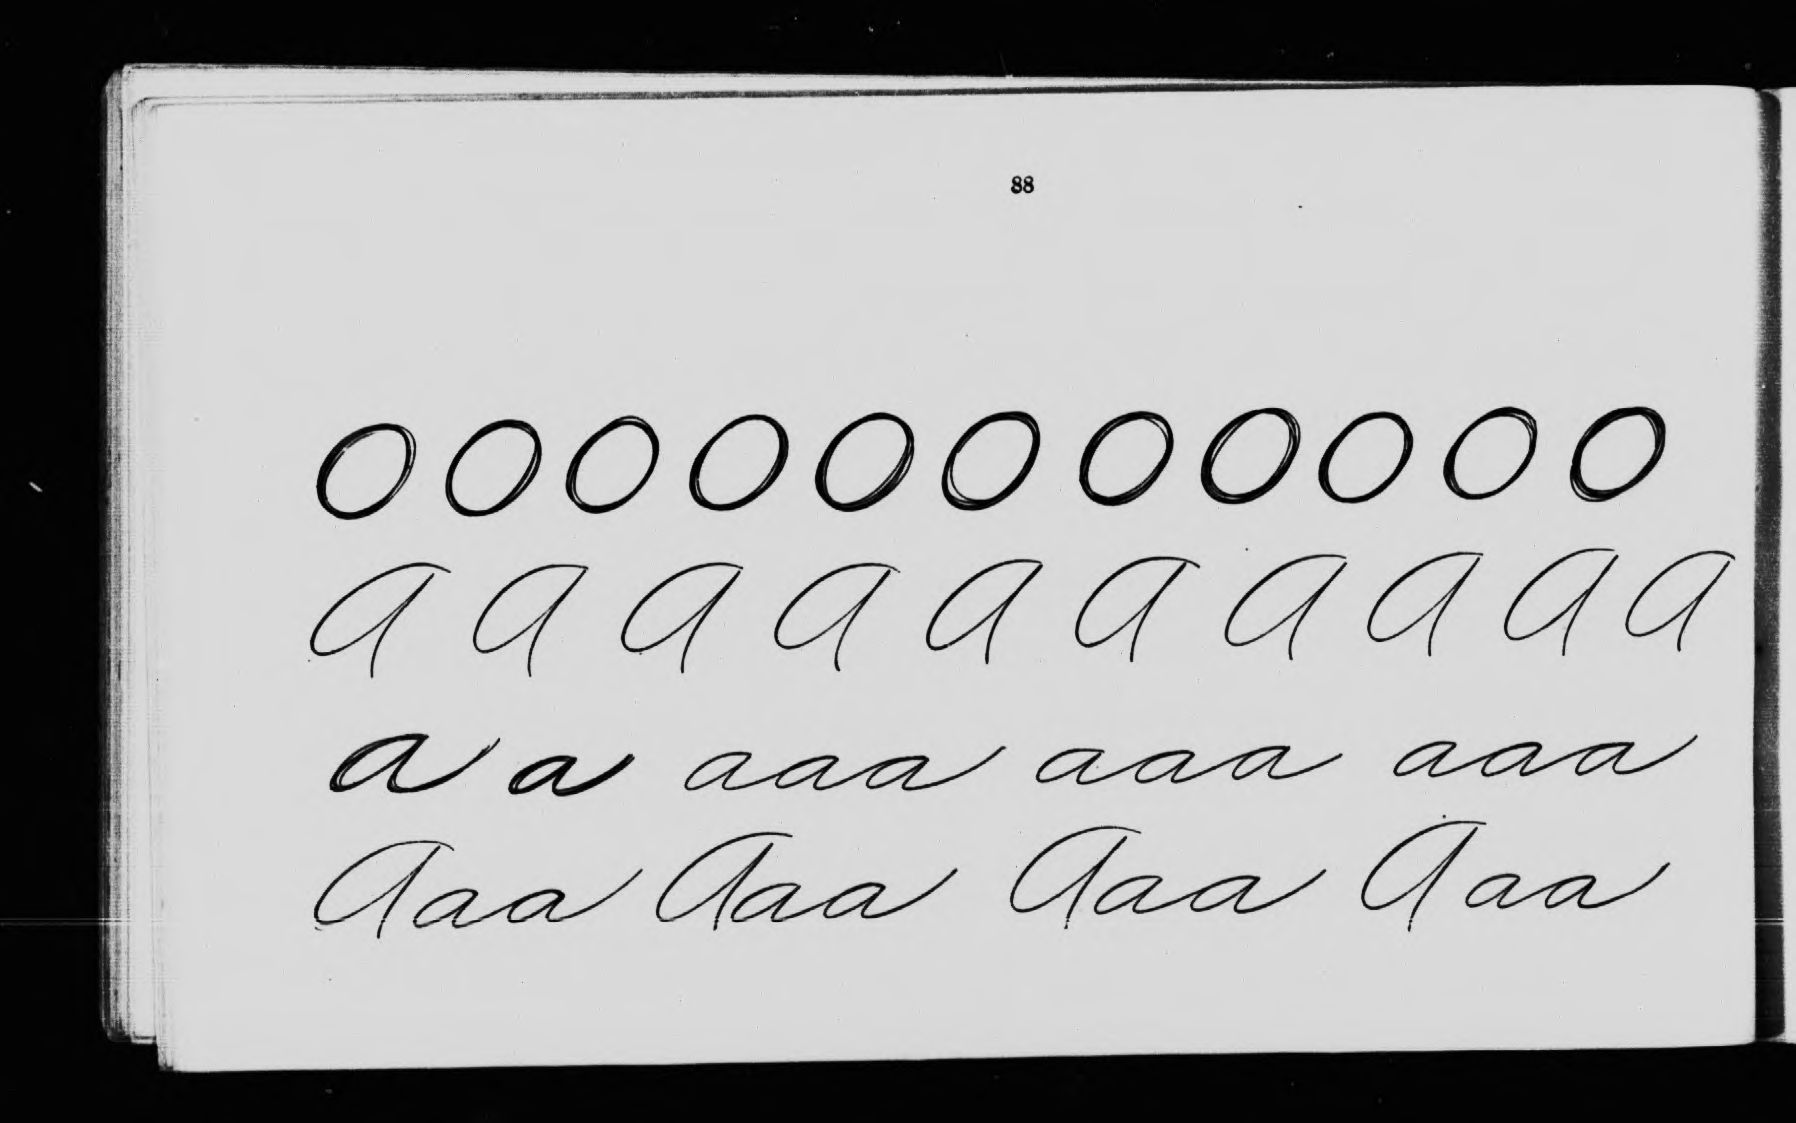 88
O O O O O O O O O O O
A A A A A A A A A A
a a aaa aaa aaa
Aaa Aaa Aaa Aaa